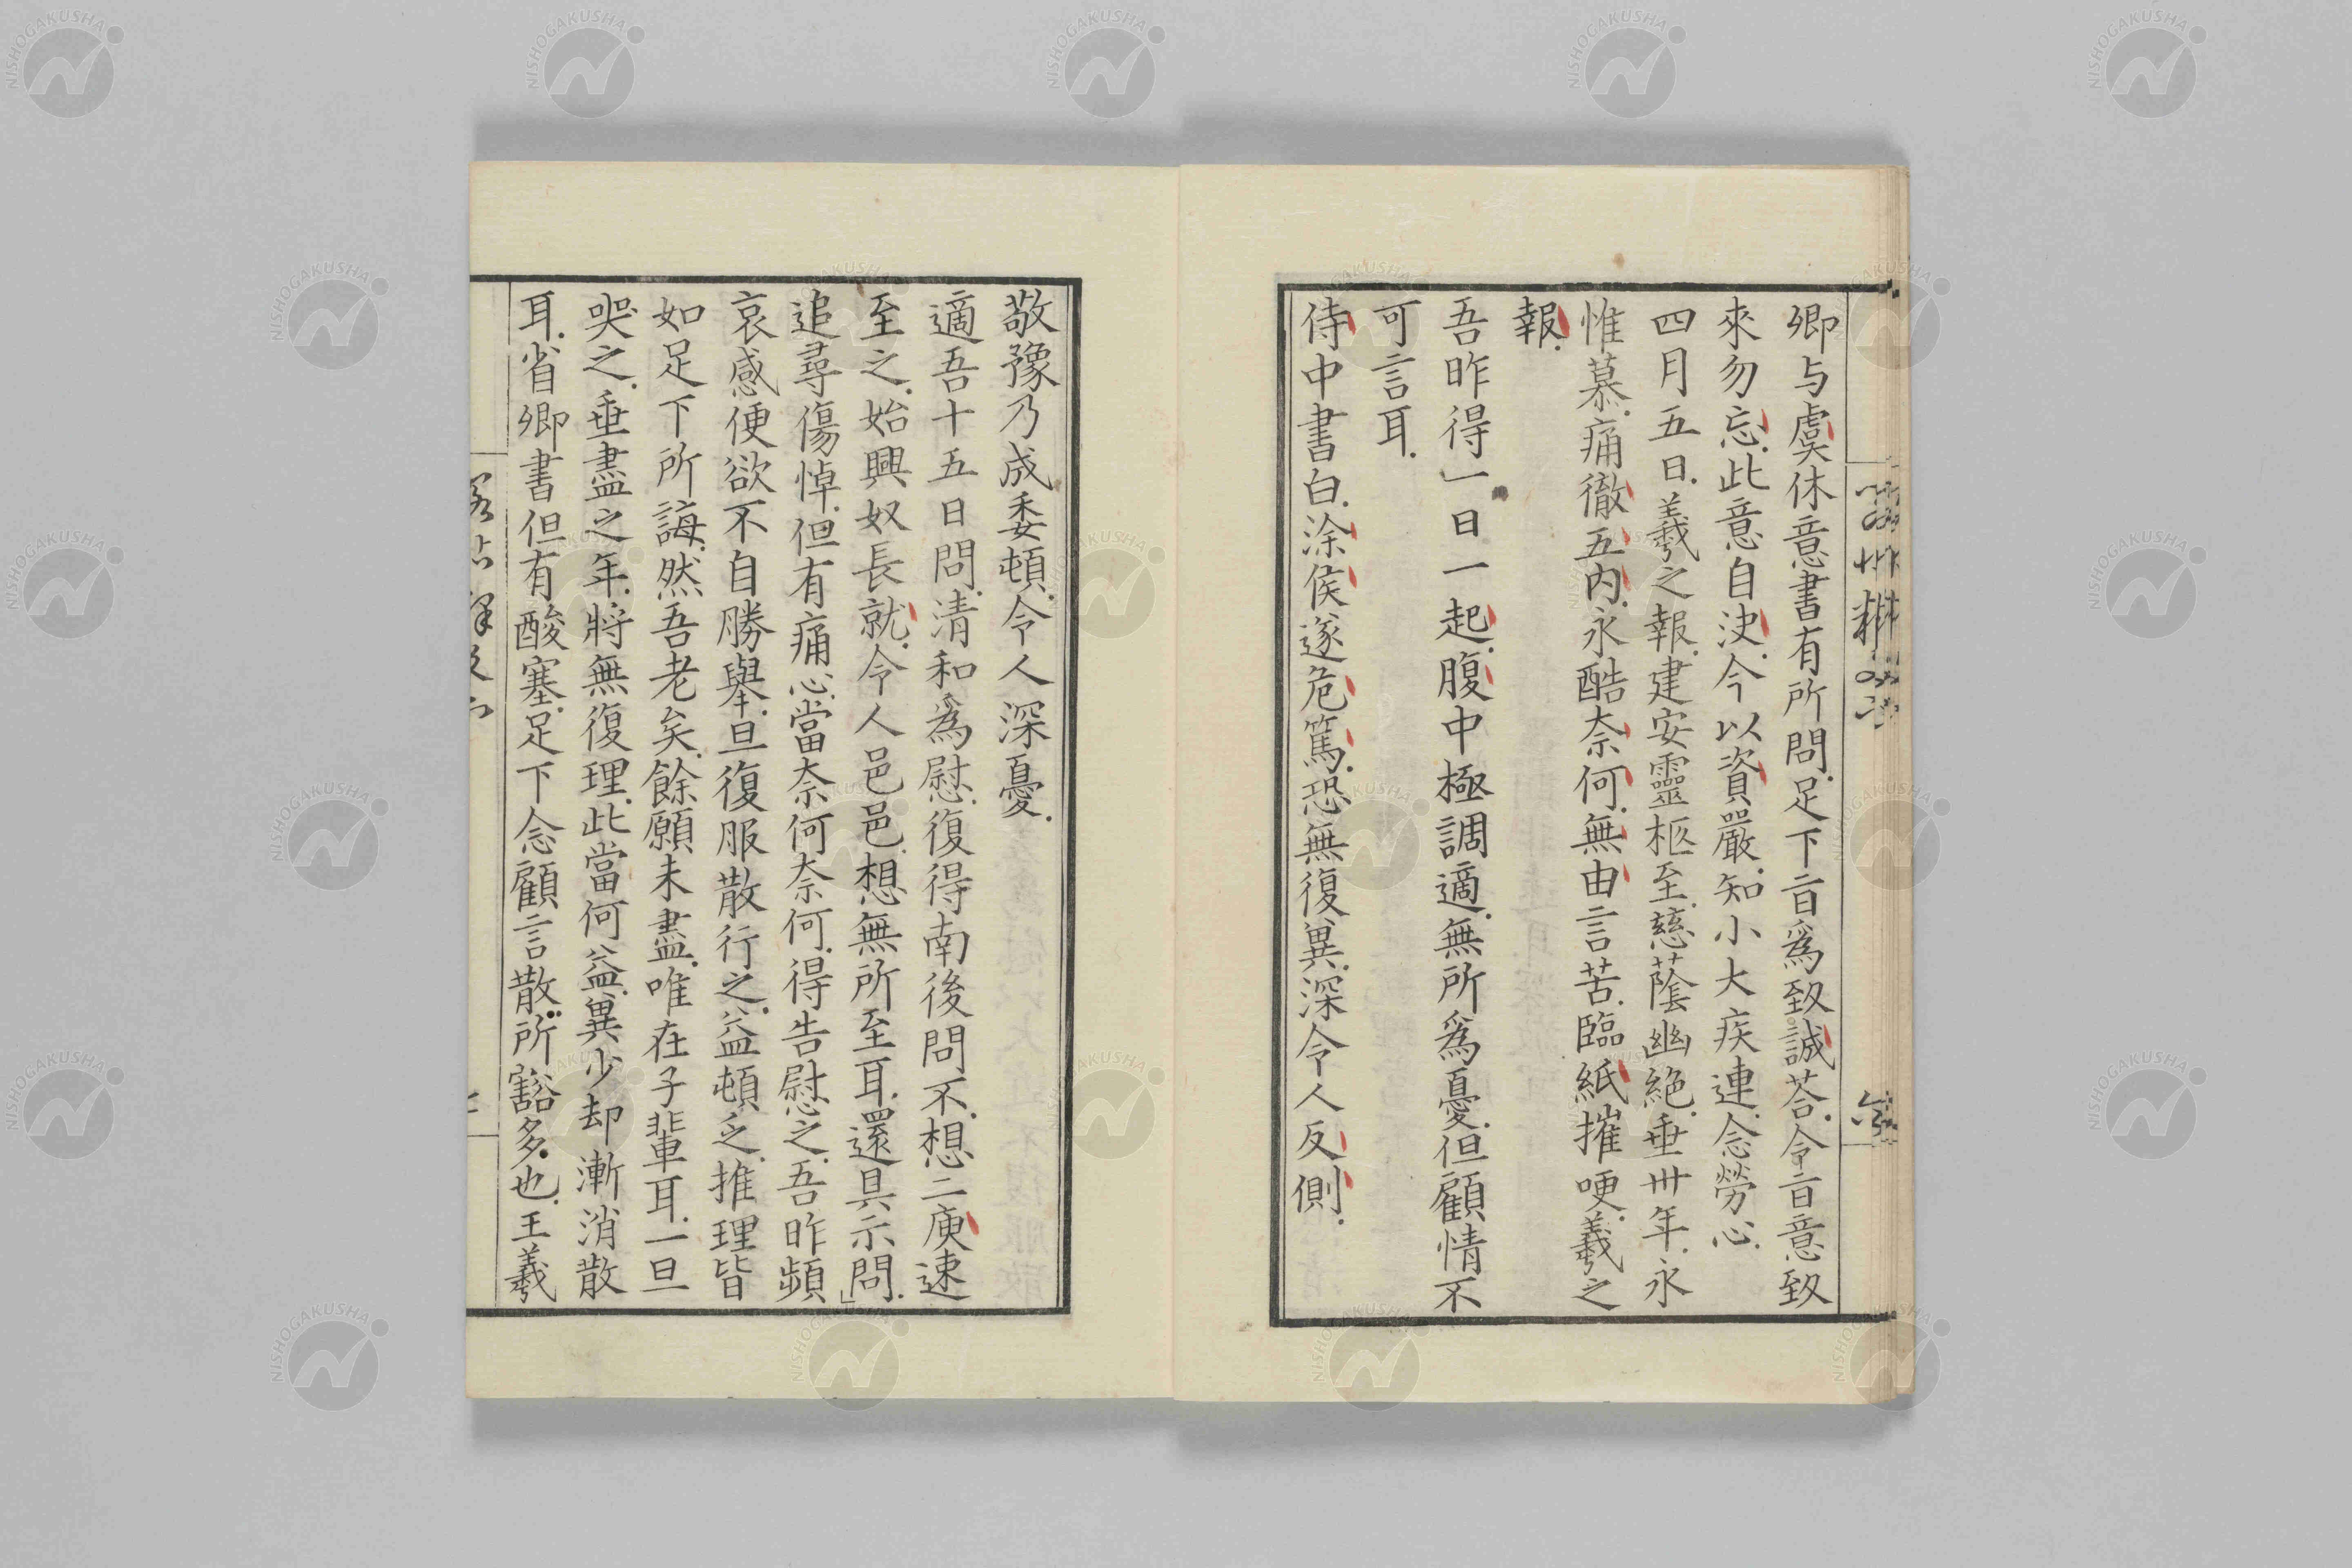 卿与虞休意書有所問足下旨爲致誠荅令旨意致
來勿忘此意自决今以資嚴知小大疾連念勞心
四月五日羲之報建安靈柩至慈蔭幽絶垂卅年永
惟慕痛徹五内永酷奈何無由言苦臨紙摧哽羲之
報
吾昨得一日一起腹中極調適無所爲憂但顧情不
可言耳
侍中書白涂侯遂危篤恐無復異深令人反側
敬豫乃成委頓令人深憂
適吾十五日問清和爲慰復得南後問不想二庾速
至之始興奴長就令人邑邑想無所至耳還具示問
追尋傷悼但有痛心當奈何奈何得告慰之吾昨頻
哀感便欲不自勝舉旦復服散行之益頓乏推理皆
如足下所誨然吾老矣餘願未盡唯在子輩耳一旦
哭之垂盡之年將無復理此當何益異少却漸消散
耳省卿書但有酸塞足下念顧言散所豁多也王羲
NISHOGAKUSHA